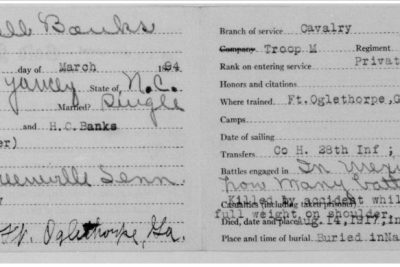 ell Banks
day of March 1894
Yancey State of N.C.
Married? Single
and H.C. Banks
er)
eenville Tenn
Ft. Oglethorpe, Ga.
Branch of service Cavalry
Company Troop M Regiment
Rank on entering service Privat
Honors and citations
Where trained Ft.Oglethorpe,G
Camps
Date of sailing
Transfers Co H. 28th Inf ;
Battles engaged in In
how many batt
Killed by accident whil
Casualties (including taken prisoner)
full weight on shoulder.
Died, date and place Aug.14,1917,in
Place and time of burial Buried inNa